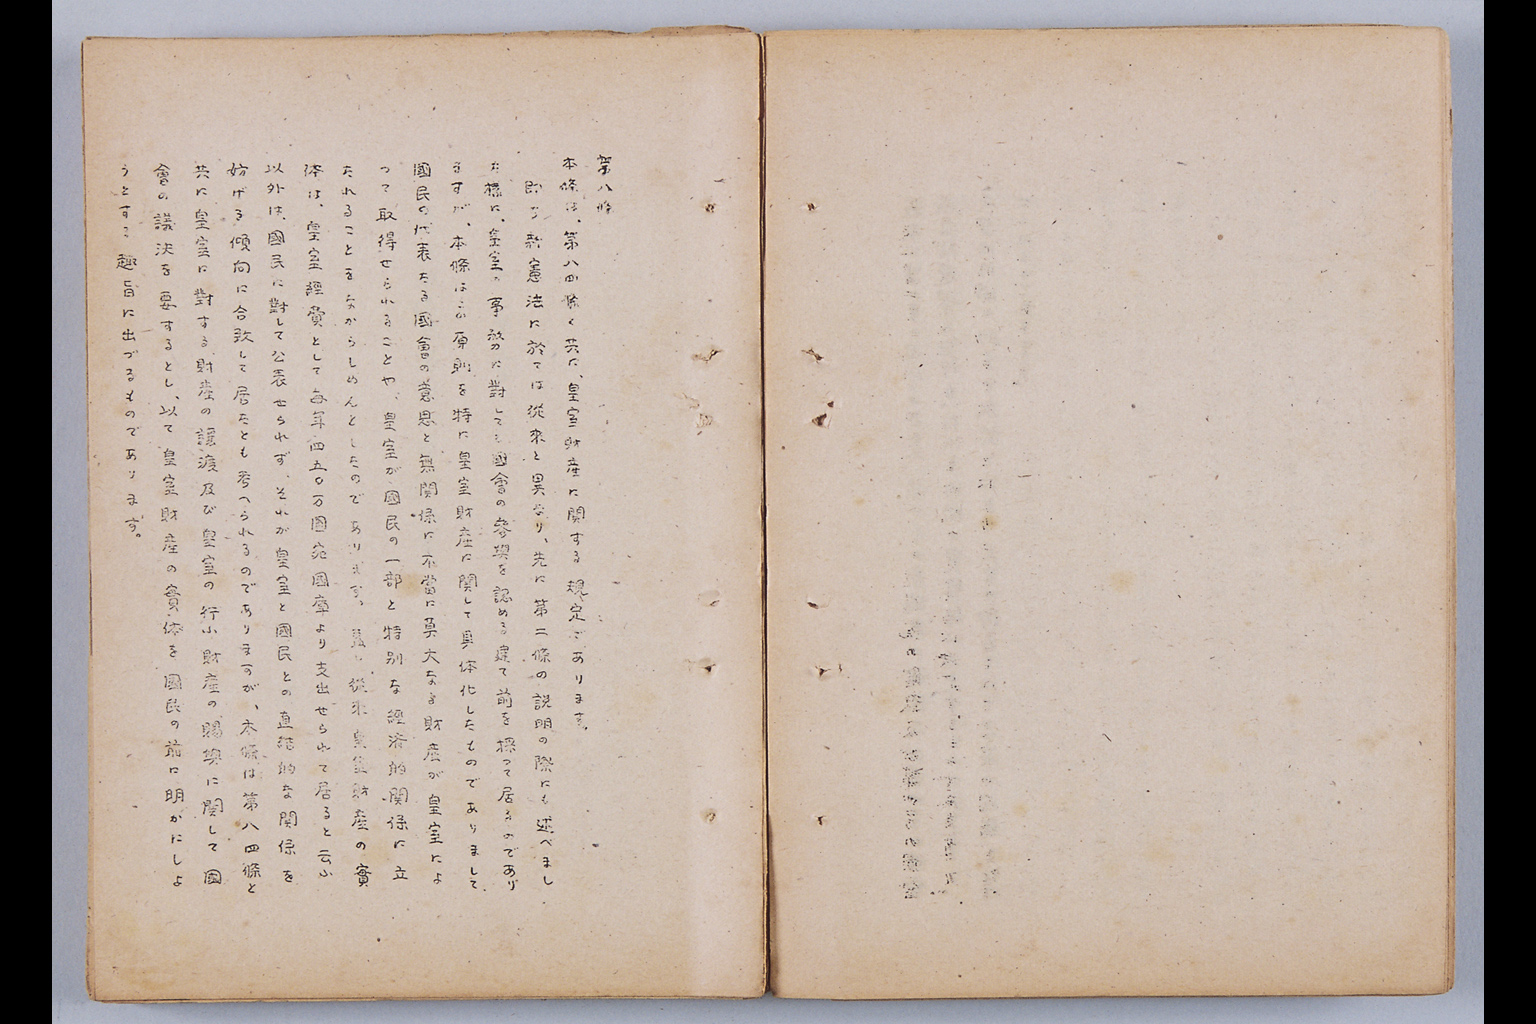 第八條
本條は、第八四條と共に、皇室財産に関する規定であります。
即ち新憲法に於ては從來と異なり、先に第二條の説明の際にも述べまし
た樣に、皇室の事務に對しても國會の參與を認める建て前を採って居るのであり
ますが、本條はこの原則を特に皇室財産に関して具体化したものでありまして、
國民の代表たる國會の意思と無関係に不當に莫大なる財産が皇室によ
って取得せられることや、皇室が國民の一部と特別な経済的関係に立
たれることをなからしめんとしたのであります。蓋し從來皇室財産の實
体は、皇室経費として毎年四五〇万圓宛國庫より支出せられて居ると云ふ
以外は、國民に對して公表せられず、それが皇室と國民との直結的な関係を
妨げる傾向に合致して居たとも考へられるのでありますが、本條は第八四條と
共に皇室に對する財産の譲渡及び皇室の行ふ財産の賜與に関して國
會の議決を要するとし、以て皇室財産の實体を國民の前に明かにしよ
うとする趣旨に出づるものであります。